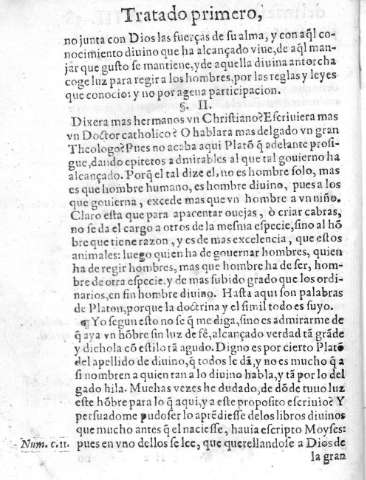 Tratado primero,
no junta con Dios las fuerças de su alma, y con aq̃l co-
nocimiento diuino que ha alcançado viue, de aq̃l man-
jar que gusto se mantiene, y de aquella diuina antorcha
coge luz para regir a los hombres, por las reglas y leyes
que conocio: y no por agena participacion.
§. II.
Dixera mas hermanos vn Christiano? Escriuiera mas
vn Doctor catholico? O hablara mas delgado vn gran
Theologo? Pues no acaba aqui Platõ q̃ adelante prosi-
gue, dando epitetos admirables al que tal gouierno ha
alcançado. Porq̃ el tal dize el, no es hombre solo, mas
es que hombre humano, es hombre diuino, pues a los
que gouierna, excede mas que vn hombre a vn niño.
Claro esta que para apacentar ouejas, ò criar cabras,
no se da el cargo a otros de la mesma especie, sino al hõ
bre que tiene razon, y es de mas excelencia, que estos
animales: luego quien ha de gouernar hombres, quien
ha de regir hombres, mas que hombre ha de ser, hom-
bre de otra especie, y de mas subido grado que los ordi-
narios, en fin hombre diuino. Hasta aqui son palabras
de Platon, porque la doctrina y el simil todo es suyo.
¶ Yo segun esto no se q̃ me diga, sino es admirarme de
q̃ aya vn hõbre sin luz de fè, alcançado verdad tã grãde
y dichola cõ estilo tã agudo. Digno es por cierto Platõ
del apellido de diuino, q̃ todos le dã, y no es mucho q̃ a
si nombren a quien tan a lo diuino habla, y tã por lo del
gado hila. Muchas vezes he dudado, de dõde tuuo luz
este hõbre para lo q̃ aqui, y a este proposito escriuio? Y
persuadome pudo ser lo aprẽdiesse de los libros diuinos
que mucho antes q̃ el naciesse, hauia escripto Moyses:
Num. c. 11. pues en vno dellos se lee, que querellandose a Dios de
la gran